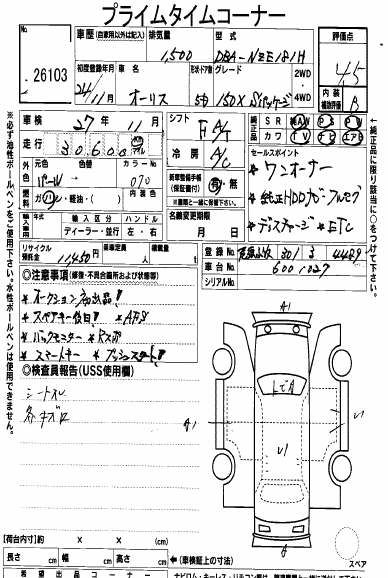 プライムタイムコーナー
No.
26103
車歴(自家用以外は記入) 排気量 型式
1,500 DBA-NZE181H
評価点
4.5
内装補助評価 B
初度登録年月 車名 形状ドア数 グレード
24/11月 オーリス 5D 150X Sパッケージ
2WD
4WD
車検 27年11月
シフト
走行 30600
冷房 A/C
純正品 SR AW PS PW
純正品 カワ TV ナビ エアB
外色 元色 色替 カラーNo.
パール 070
新車整備手帳(保証書付) 有・無
燃料 ガソリン・軽油・( )
輸入車 年式 輸入区分 ハンドル
ディーラー・並行 左・右
名義変更期限
月 日
セールスポイント
*ワンオーナー
*純正HDDナビ フルセグ
*ディスチャージ *ETC
リサイクル預託金 11450円 乗車定員 人 積載量
登録No. 301 ろ 4489
車台No. 6001027
シリアルNo.
◎注意事項(修復・不具合箇所および状態等)
*オークション初出品!
*スペアキー後日! *AFS
*バックモニター *Rスポ
*スマートキー *プッシュスタート!
◎検査員報告(USS使用欄)
シートスレ
各キズ
A1
A1
U1
U1
スペア
[荷台内寸] × × (cm)
長さ cm 幅 cm 高さ cm
←(車検証上の寸法)
希望出品コーナー
※必ず油性ボールペンをご使用下さい。水性ボールペンは使用できません。
※純正品に限り該当に○をつけて下さい。